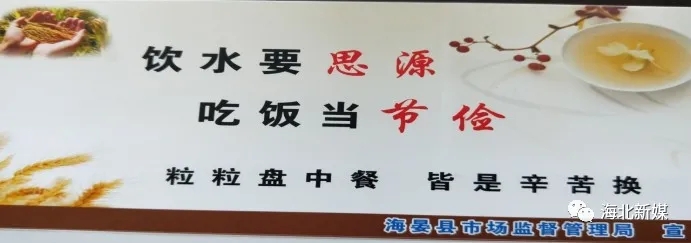 饮水要思源
吃饭当节俭
粒粒盘中餐 皆是辛苦换
海晏县市场监督管理局 宣
海北新媒